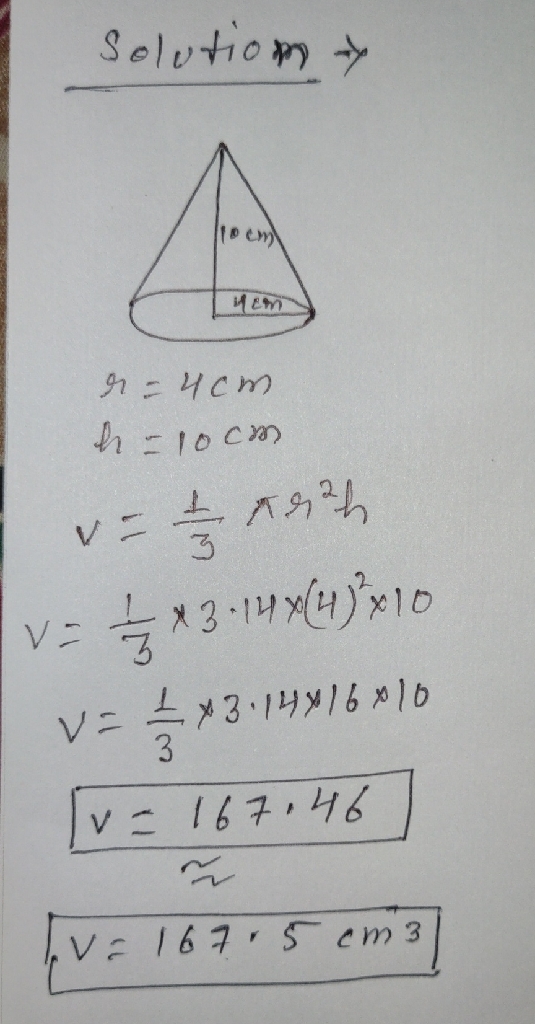 Solution →
10 cm
4cm
r = 4cm
h = 10 cm
v = 1/3 πr²h
V = 1/3 × 3.14 × (4)² × 10
V = 1/3 × 3.14 × 16 × 10
V = 167.46
≈
V = 167.5 cm3